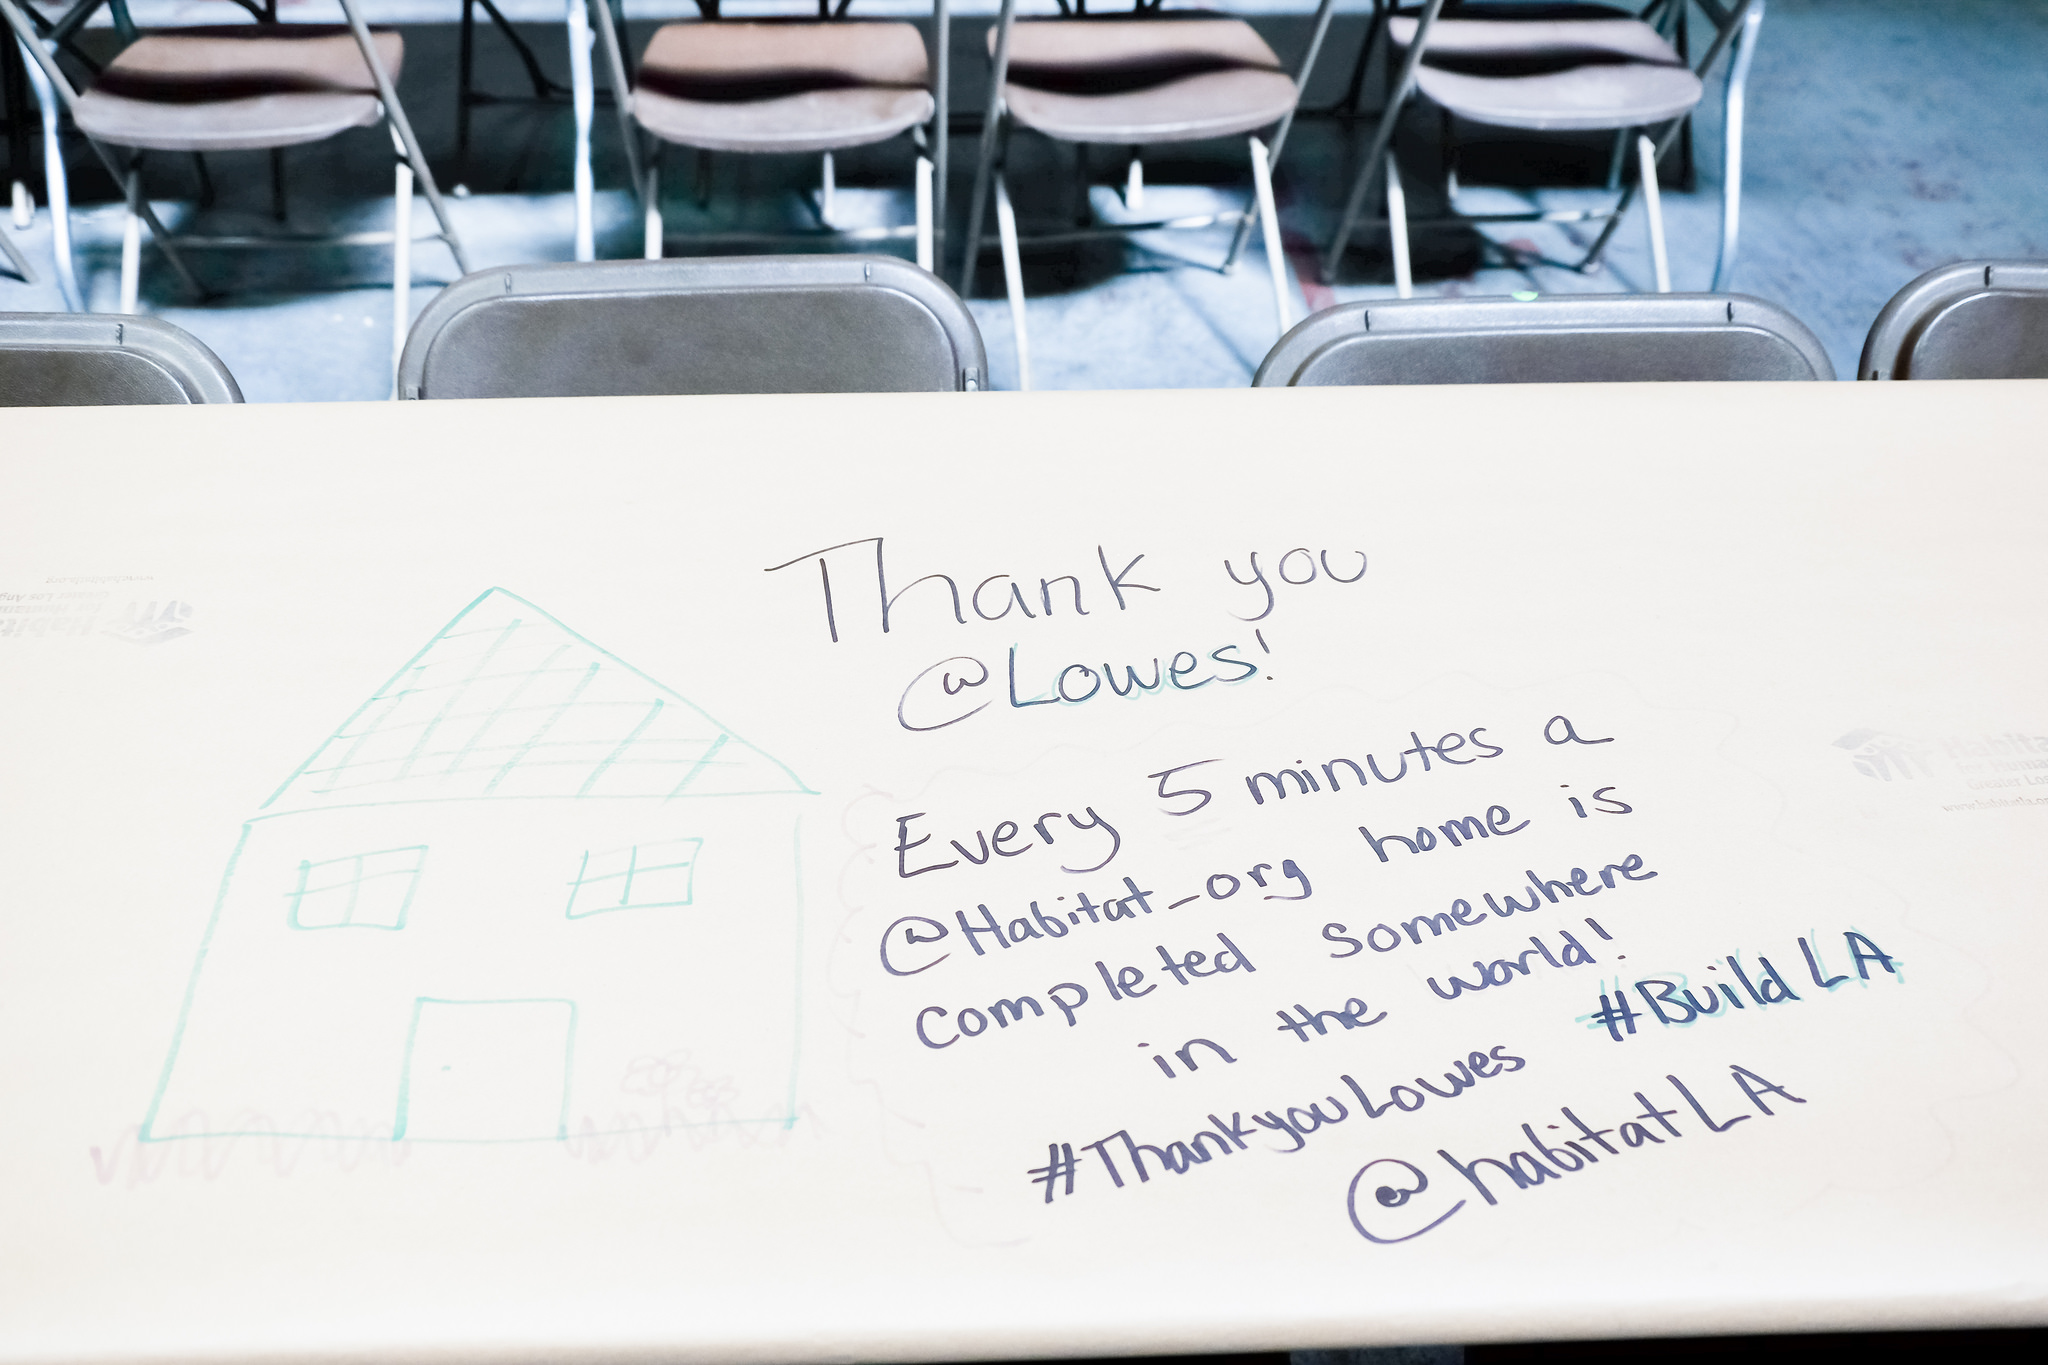 Thank you
@Lowes!
Every 5 minutes a
@Habitat_org home is
completed somewhere
in the world!
#ThankyouLowes #BuildLA
@habitatLA
Habita
for Huma
Greater Los
www.habitatla.or
www.habitatla.org
Greater Los Ang
for Humani
Habit